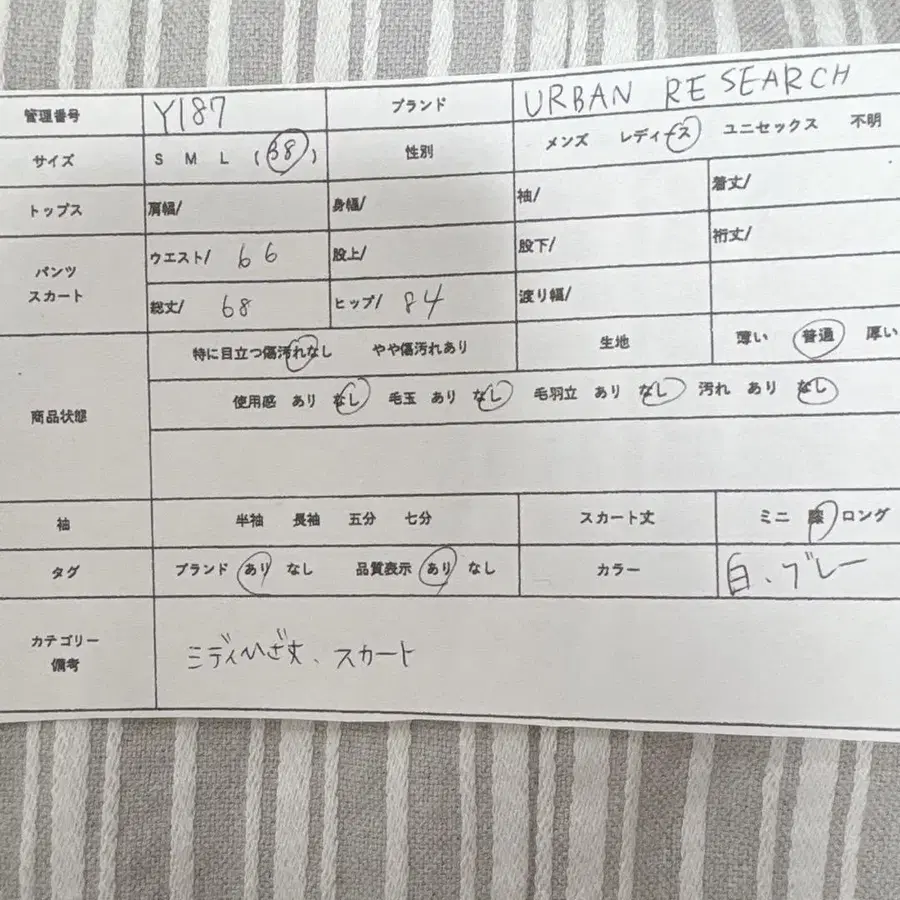 管理番号 Y187 ブランド URBAN RESEARCH
サイズ S M L (38) 性別 メンズ レディース ユニセックス 不明
トップス 肩幅/ 身幅/ 袖/ 着丈/
パンツ スカート ウエスト/ 66 股上/ 股下/ 裄丈/
総丈/ 68 ヒップ/ 84 渡り幅/
商品状態 特に目立つ傷汚れなし やや傷汚れあり 生地 薄い 普通 厚い
使用感 あり なし 毛玉 あり なし 毛羽立 あり なし 汚れ あり なし
袖 半袖 長袖 五分 七分 スカート丈 ミニ 膝 ロング
タグ ブランド あり なし 品質表示 あり なし カラー 白、グレー
カテゴリー 備考 ミディひざ丈、スカート